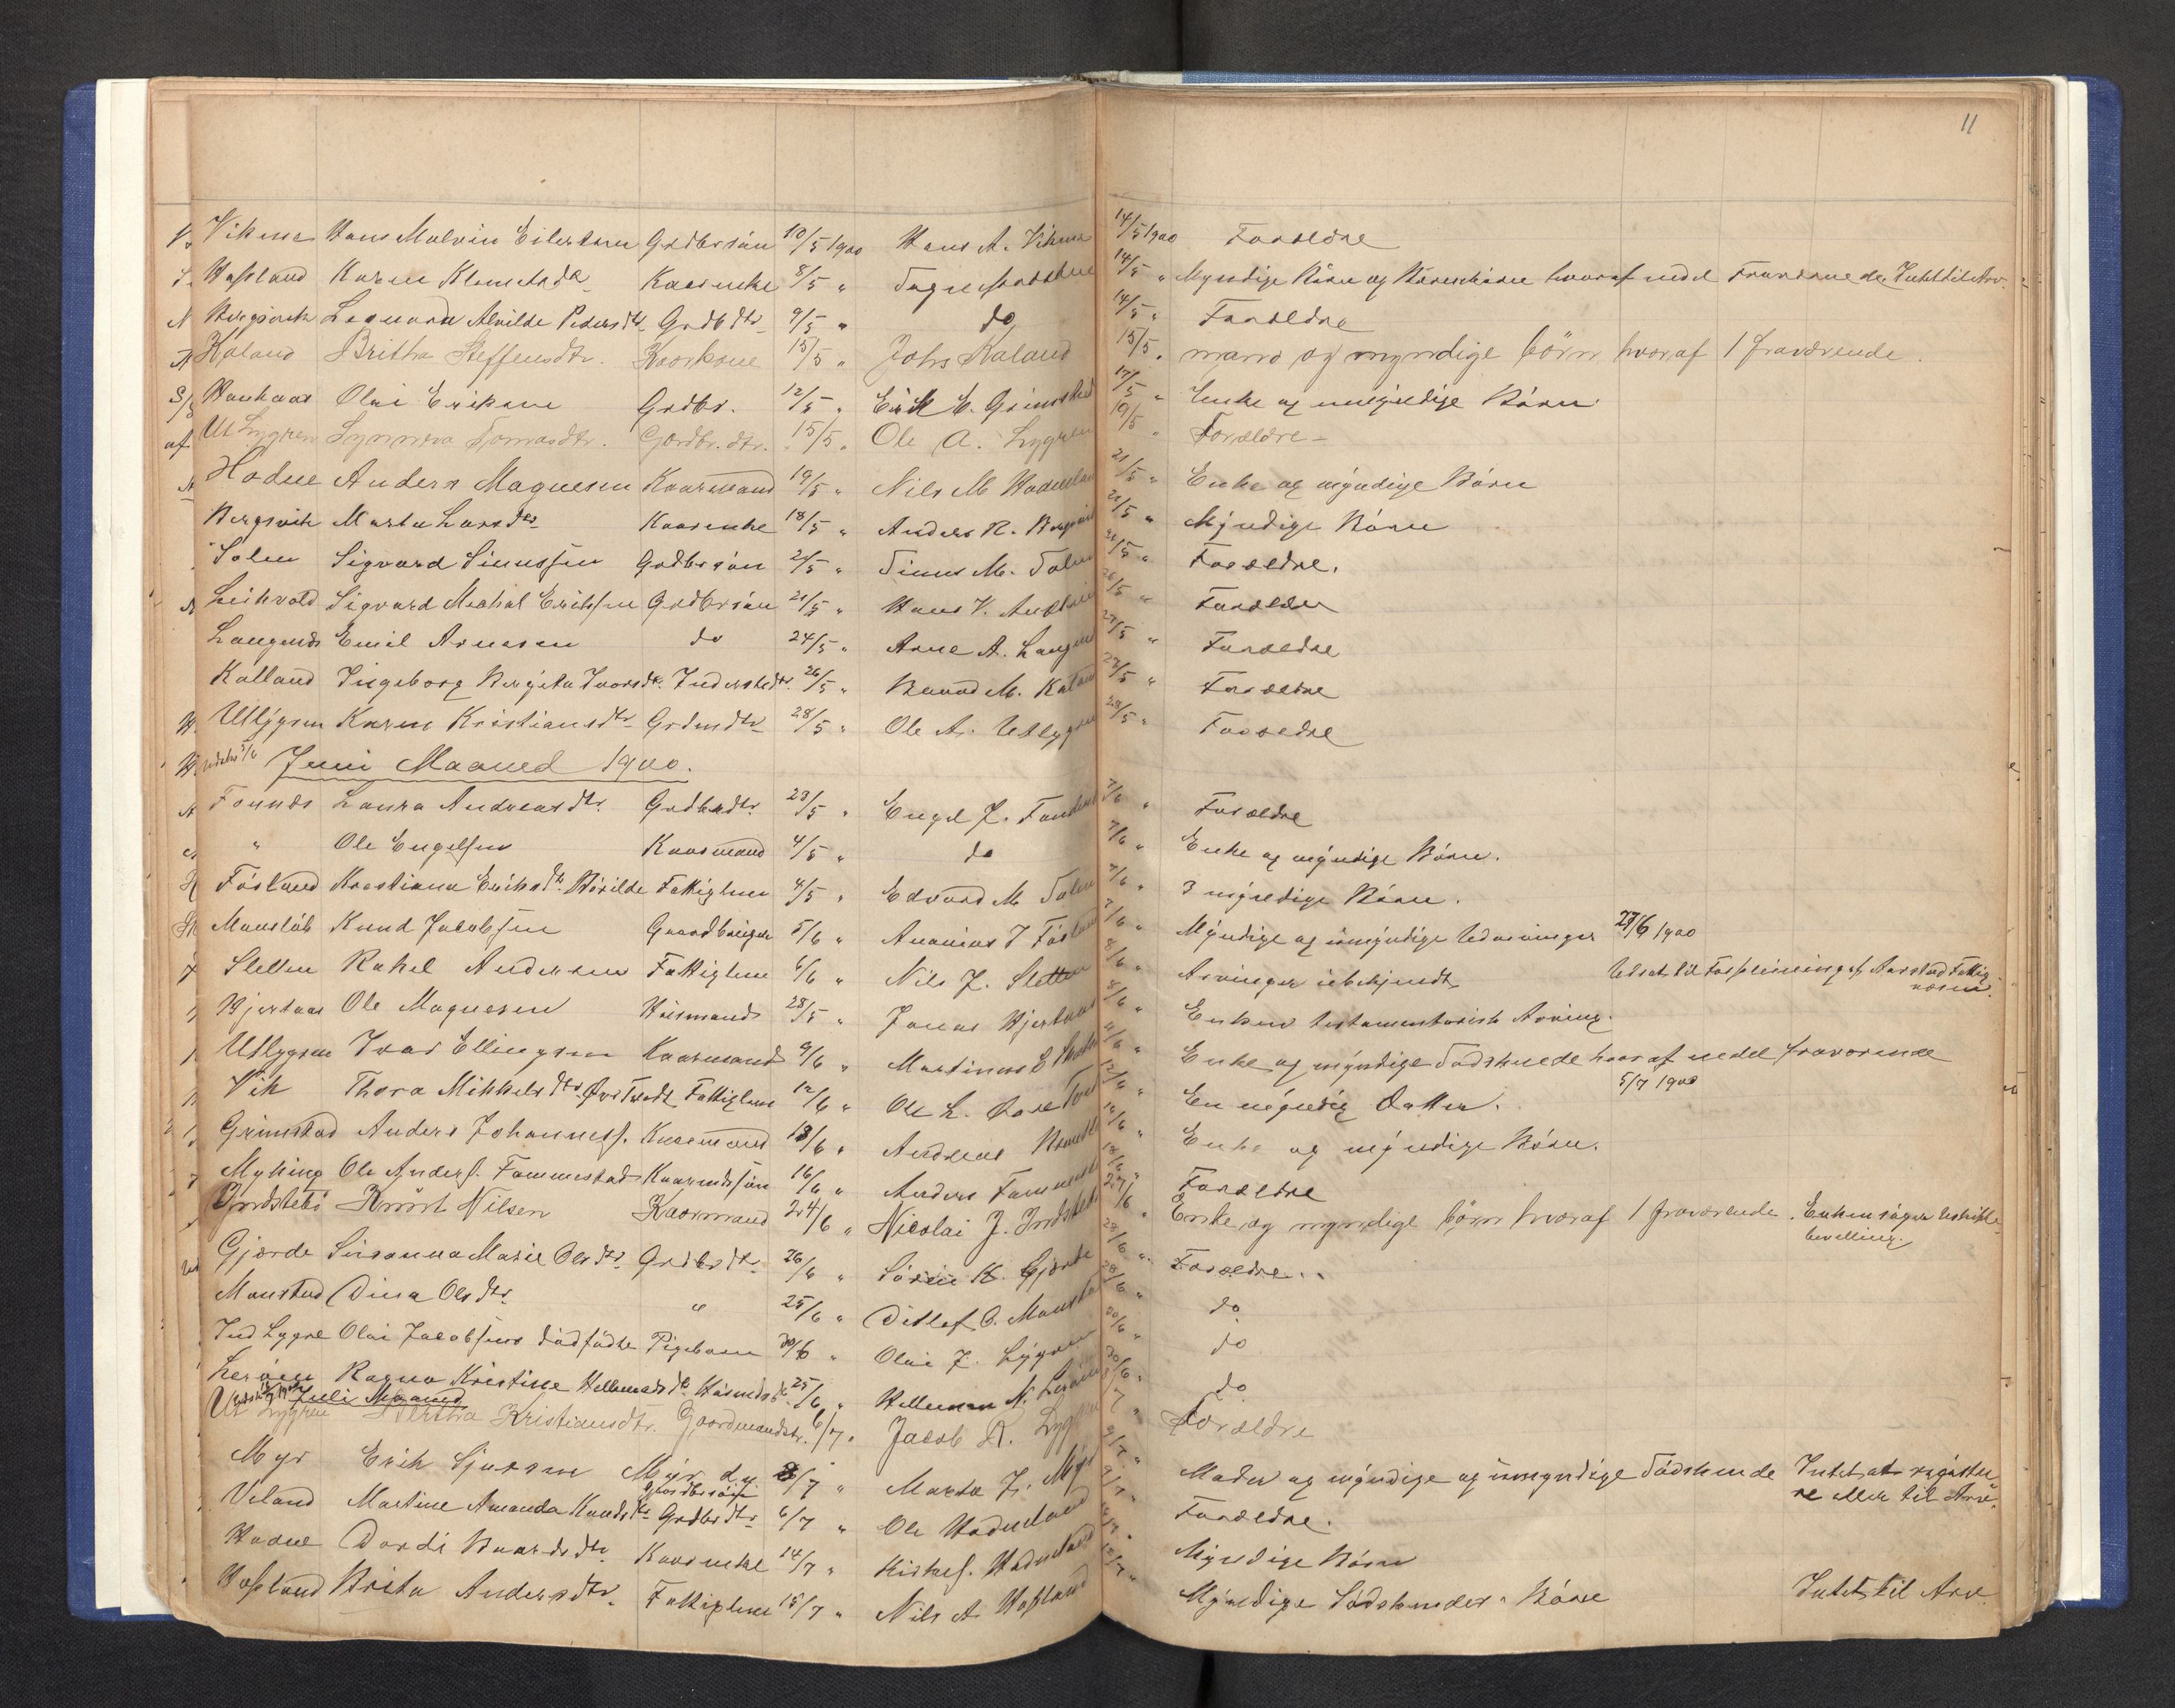 11
Vikene Hans Malvin Eilertsen Grdbrsön 10/5 1900 Hans A. Vikene 14/5 1900 Forældre
Hopland Karen Klemetsdtr Kaarenke 8/5 " 14/5 " Myndige Börn og Börnebörn hvoraf endel Fraværende. Intet til Arv.
Bergsvik Leonora Alvilde Pedersdtr Grdbdtr 9/5 " do 14/5 " Forældre
Kaland Britha Steffensdtr. Kaarkone 15/5 " Johs Kaland 15/5 " mand og myndige börn hvoraf 1 fraværende.
Haukaas Olai Eriksen Grdbr. 12/5 " Erik E. Grimstad 17/5 " Enke og umyndige Börn
Ut Lygren Synneva Tomasdtr. Gardbr.dtr. 15/5 " Ole A. Lygren 19/5 " Forældre –
Hodne Anders Magnesen Kaarmand 19/5 " Nils M Hodneland 21/5 " Enke og myndige Börn
Bergsvik Marta Larsdtr Kaarenke 18/5 " Anders R. Bergsvik 21/5 " Myndige Börn
Solem Sigvard Simessen Grdbrsön 21/5 " 21/5 " Forældre.
Leikvold Sigvard Mechal Eriksen Grdbrsön 21/5 " Hans V. 26/5 " Forældre
Langenes Emil Arnesen do 24/5 " Arne A. 28/5 " Forældre
Kalland Ingeborg Bergeta Ivarsdtr. 26/5 " Baard M. Kaland 28/5 " Forældre
Utlygren Karen Kristiansdtr Grdmdtr 28/5 " Ole A. Utlygren 28/5 " Forældre
Juni Maaned 1900.
Fonnes Laura Andreasdtr. Grdbrdtr. 23/5 " Engel J. Fonnes 7/6 " Forældre
" Ole Engelsen Kaarmand 4/5 " do 7/6 " Enke og myndige Börn.
Fösland Kristiana Eriksdtr Fattiglem 4/5 " Edvard M. 7/6 " 3 myndige Börn.
Monslöb Knud Jacobsen Gaardbruger 5/6 " Ananias J Fösland 7/6 " Myndige og umyndige Udarvinger 27/6 1900
Sletten Rakel Andersen Fattiglem 6/6 " Nils J. Sletten 8/6 " Arvinger ubekjendt Udsat til Forfölgning af Aarstad Fattigvæsen.
Hjertaas Ole Magnesen Husmand 28/5 " Jonas Hjertaas 8/6 " Enken testamentarisk Arving.
Utlygren Ivar Ellingsen Kaarmand 9/6 " Martinus E 11/6 " Enke og myndige Södskende hvoraf endel fraværende
Vik Thora Mikkelsdtr Fattiglem 12/6 " Ole L. 12/6 " En myndig Datter. 5/7 1900
Grimstad Anders Johannesf. Kaarmand 13/6 " Andreas 16/6 " Enke og myndige Börn.
Myking Ole Andersf. Fammestad Kaarmdssön 16/6 " Anders Fammestad 18/6 " Forældre
Indstebö Knut Nilsen Kaarmand 24/6 " Nicolai J. Indstebö 27/6 " Enke og myndige börn hvoraf 1 fraværende. Enken söger Uskiftebevilling.
Gjærde Susanna Marie Olsdtr. Grdbrdtr. 26/6 " Sören K. Gjærde 28/6 " Forældre
Monstad Dina Olsdtr. " 25/6 " Ditlef O. Monstad 28/6 " do
Ind Lygre Olai Jacobsens dödfödte Pigebarn 30/6 " Olai J. Lygren 30/6 " do
Leröen Ragna Kristine Hellemsdtr Husmdsdtr 25/6 " Hellemen N. Leröen 30/6 " do
Juli Maaned
Ut Lygren Bertha Kristiansdtr. Gaardmandsdtr. 6/7 " Jacob R. Lygren Forældre
Myr Erik Sjursen Myr dy Gaardbrsön 8/7 " Marta J. Myr 9/7 " Moder og myndige og umyndige Södskende Intet at registrere eller til Arv.
Veland Martine Amanda Knudsdtr Grdbrdtr 6/7 " Ole Hodneland 9/7 " Forældre.
Hodne Dordi Baardsdtr Kaarenke 14/7 " Hodneland Myndige Börn
Hopland Brita Andersdtr. Fattiglem 15/7 " Nils A. Hopland Myndige Södskendes Börn Intet til Arv